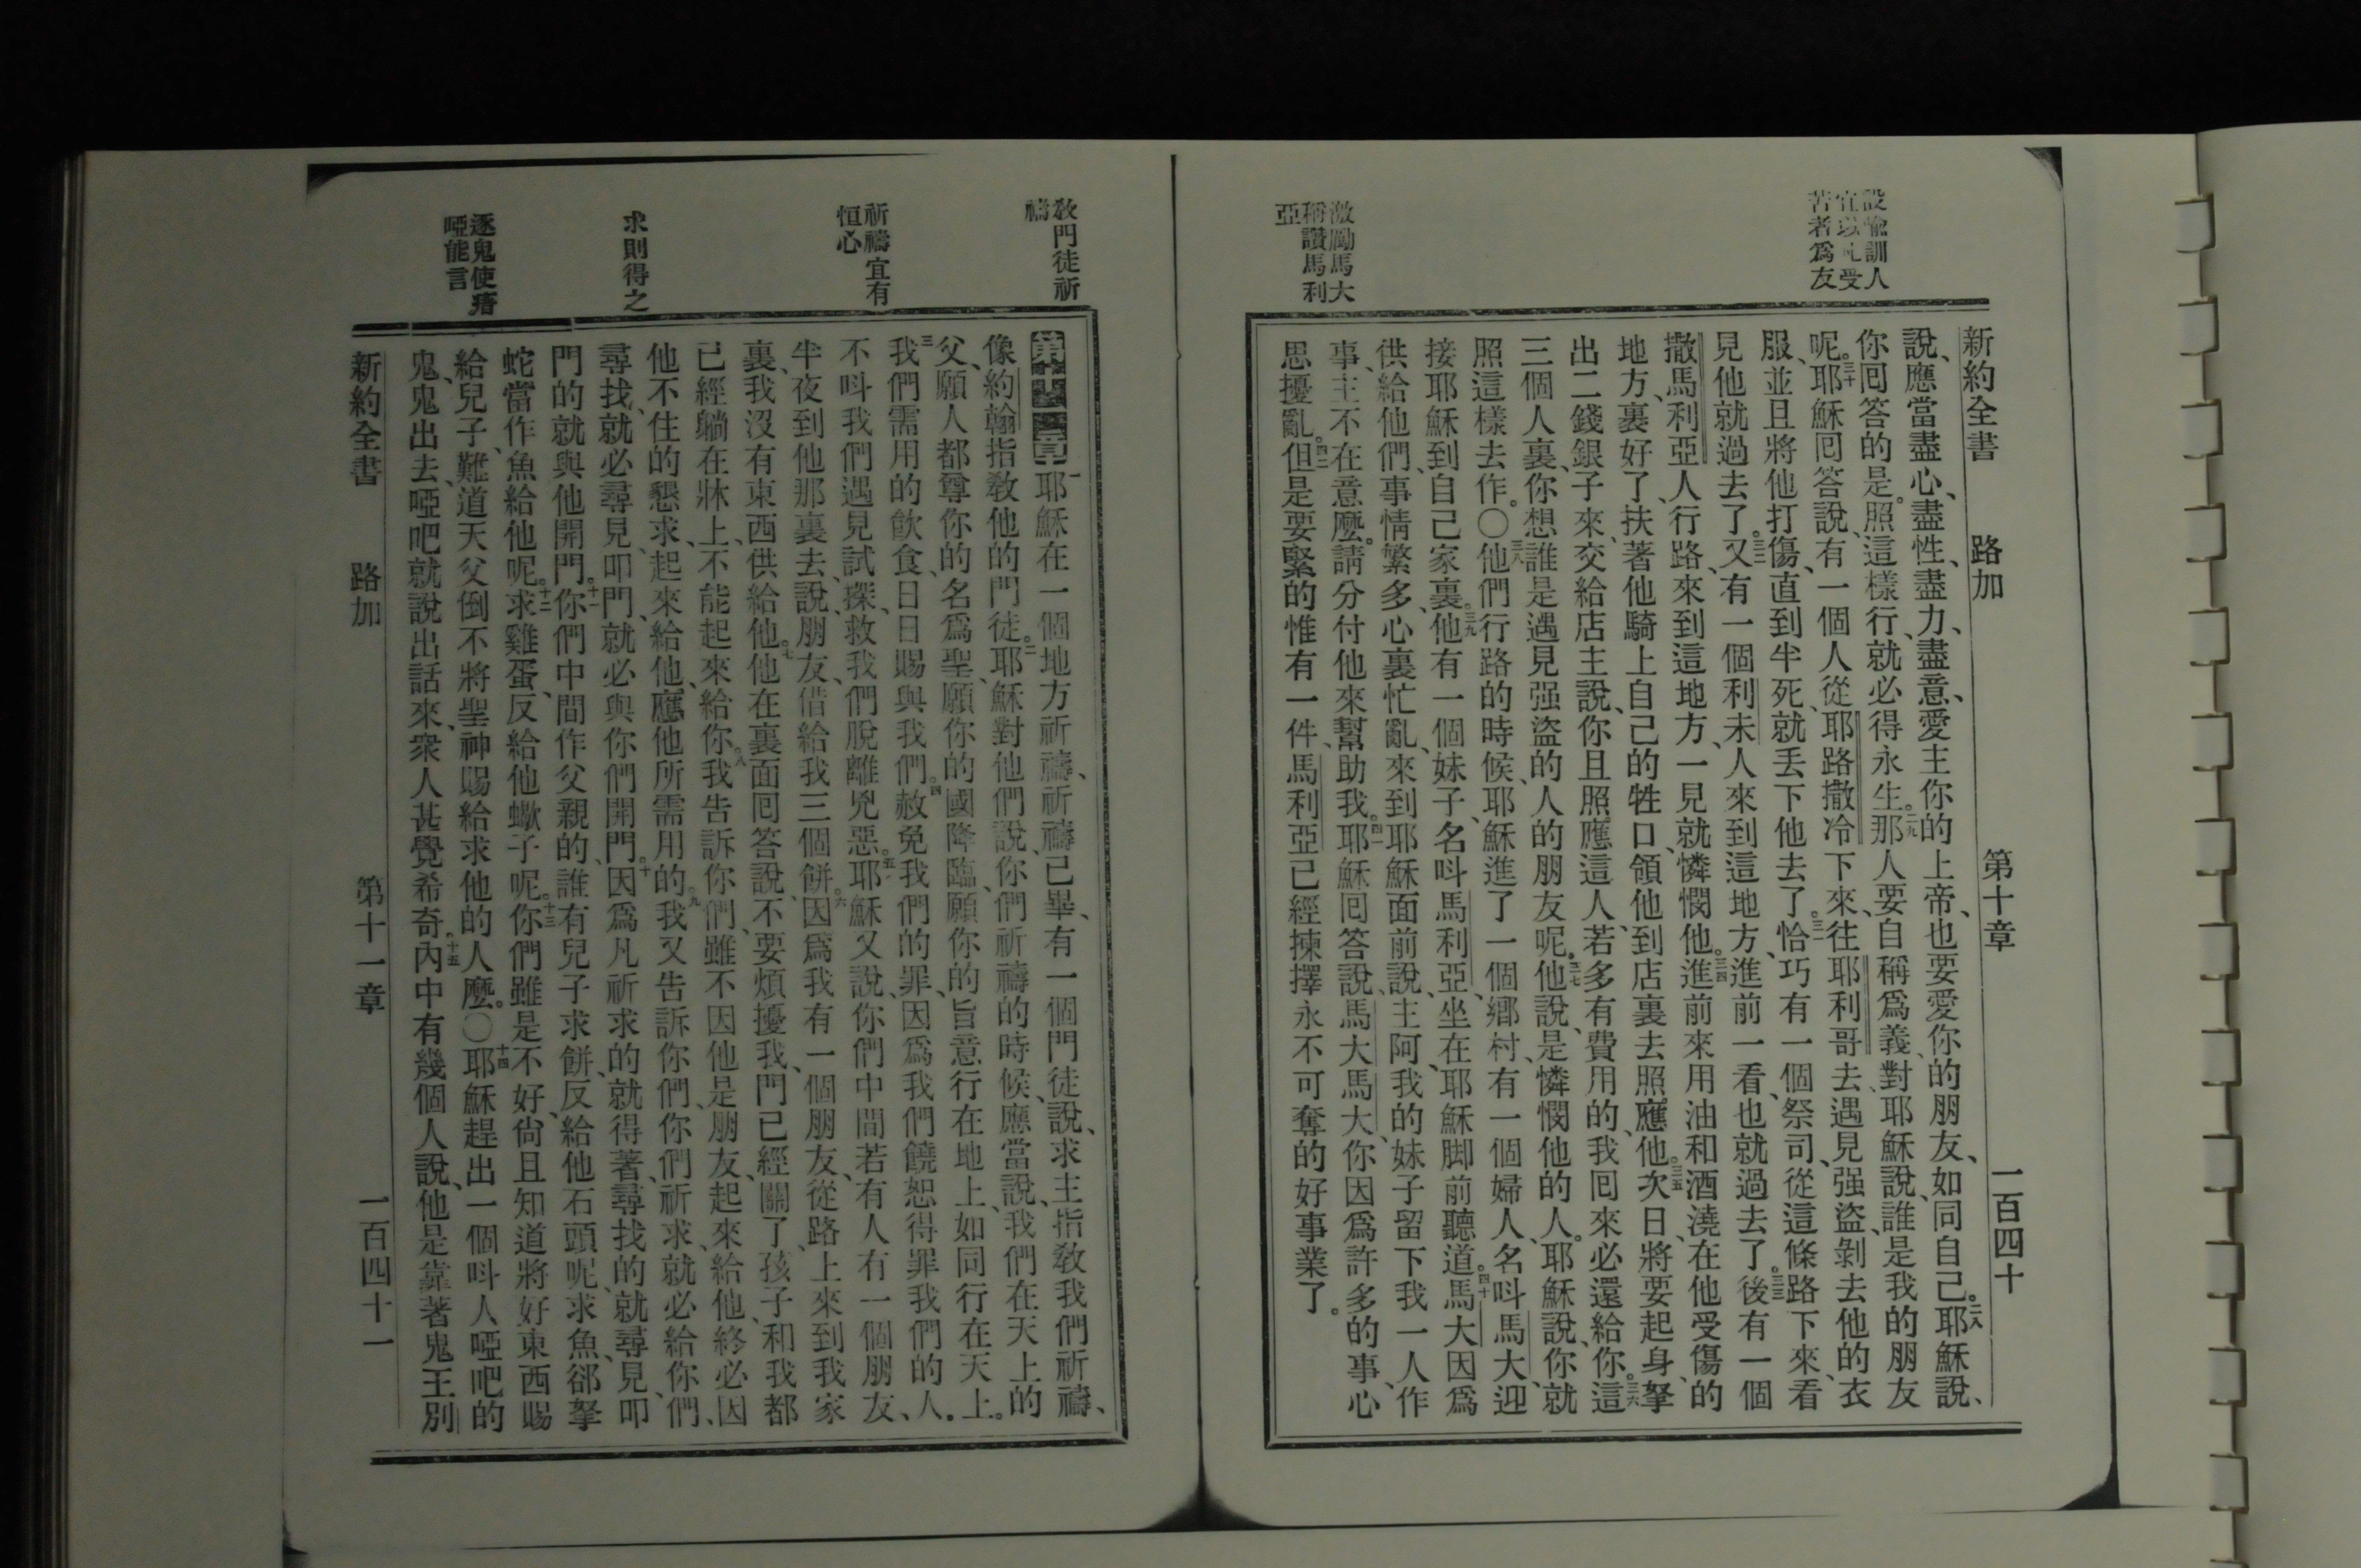 新約全書 路加 第十章 一百四十
設喩訓人
宜以凡受
苦者爲友
激勵馬大
稱讚馬利
亞
說、應當盡心、盡性、盡力、盡意、愛主你的上帝、也要愛你的朋友、如同自己。二八耶穌說、
你囘答的是。照這樣行、就必得永生。二九那人要自稱爲義、對耶穌說、誰是我的朋友
呢。三十耶穌囘答說、有一個人從耶路撒冷下來、往耶利哥去、遇見强盜、剝去他的衣
服、並且將他打傷、直到半死、就丢下他去了。三一恰巧有一個祭司、從這條路下來、看
見他就過去了。三二又有一個利未人來到這地方、進前一看、也就過去了。三三後有一個
撒馬利亞人行路、來到這地方、一見就憐憫他。三四進前來用油和酒澆在他受傷的
地方、裏好了、扶著他騎上自己的牲口、領他到店裏去照應他。三五次日將要起身、拏
出二錢銀子來、交給店主說、你且照應這人、若多有費用的、我囘來必還給你。三六這
三個人裏、你想誰是遇見强盜的人的朋友呢。三七他說、是憐憫他的人。耶穌說、你就
照這樣去作。〇三八他們行路的時候、耶穌進了一個鄉村、有一個婦人、名呌馬大、迎
接耶穌到自己家裏。三九他有一個妹子、名呌馬利亞、坐在耶穌脚前聽道。四十馬大因爲
供給他們、事情繁多、心裏忙亂、來到耶穌面前說、主阿、我的妹子留下我一人作
事、主不在意麼。請分付他來幫助我。四一耶穌囘答說、馬大馬大、你因爲許多的事、心
思擾亂。四二但是要緊的惟有一件、馬利亞已經揀擇永不可奪的好事業了。
敎門徒祈
禱
祈禱宜有
恒心
求則得之
逐鬼使瘖
啞能言
第十一章 一耶穌在一個地方祈禱、祈禱已畢、有一個門徒說、求主指敎我們祈禱、
像約翰指敎他的門徒。二耶穌對他們說、你們祈禱的時候、應當說、我們在天上的
父、願人都尊你的名爲聖、願你的國降臨、願你的旨意行在地上、如同行在天上。
三我們需用的飮食、日日賜與我們。四赦免我們的罪、因爲我們饒恕得罪我們的人。
不呌我們遇見試探、救我們脫離兇惡。五耶穌又說、你們中間若有人有一個朋友、
半夜到他那裏去、說、朋友、借給我三個餅。六因爲我有一個朋友、從路上來到我家
裏、我沒有東西供給他。七他在裏面囘答說、不要煩擾我、門已經關了、孩子和我都
已經躺在牀上、不能起來給你。八我告訴你們、雖不因他是朋友、起來給他、終必因
他不住的懇求、起來給他、應他所需用的。九我又告訴你們、你們祈求、就必給你們、
尋找、就必尋見、叩門、就必與你們開門。十因爲凡祈求的就得著、尋找的就尋見、叩
門的就與他開門。十一你們中間作父親的、誰有兒子求餅、反給他石頭呢、求魚、郤拏
蛇當作魚給他呢。十二求雞蛋、反給他蠍子呢。十三你們雖是不好、尙且知道將好東西賜
給兒子、難道天父倒不將聖神賜給求他的人麼。〇十四耶穌趕出一個呌人啞吧的
鬼、鬼出去、啞吧就說出話來、衆人甚覺希奇。十五內中有幾個人說、他是靠著鬼王別
新約全書 路加 第十一章 一百四十一